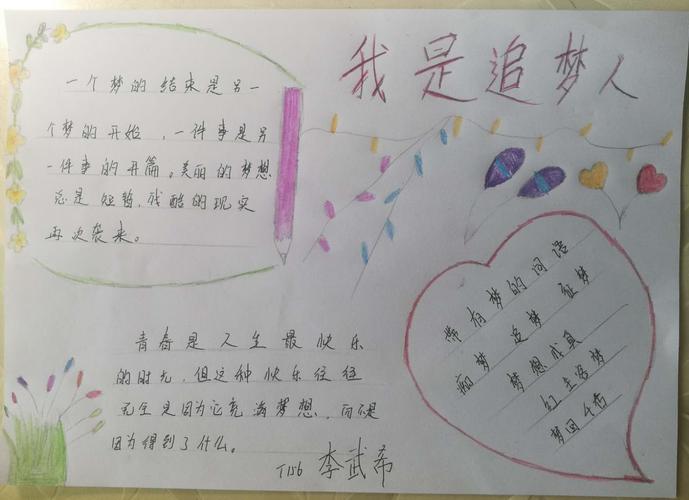 我是追梦人
一个梦的结束是另一
个梦的开始，一件事是另
一件事的开篇。美丽的梦想
总是短暂，残酷的现实
再次袭来。
带有梦的词语
痴梦 追梦 征梦
梦想成真
红尘洛梦
梦回千古
青春是人生最快乐
的时光，但这种快乐往往
完全是因为它充满梦想，而不是
因为得到了什么。
T156 李武希